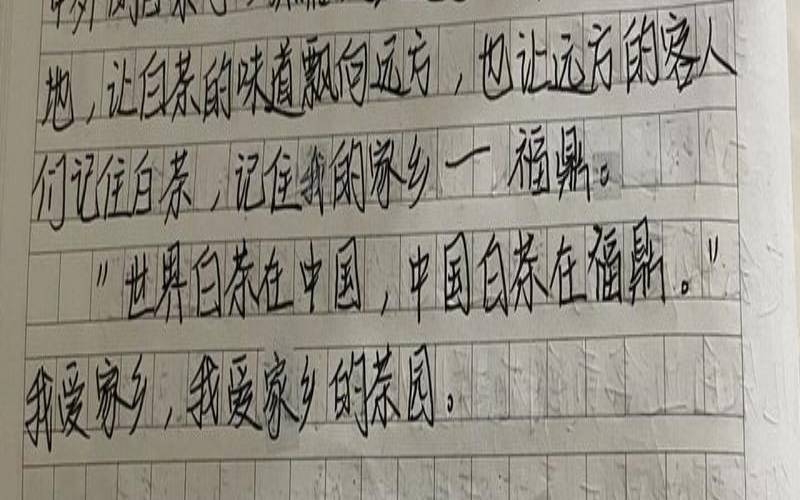 地，让白茶的味道飘向远方，也让远方的客人
们记住白茶，记住我的家乡一福鼎。
"世界白茶在中国，中国白茶在福鼎。"
我爱家乡，我爱家乡的茶园。